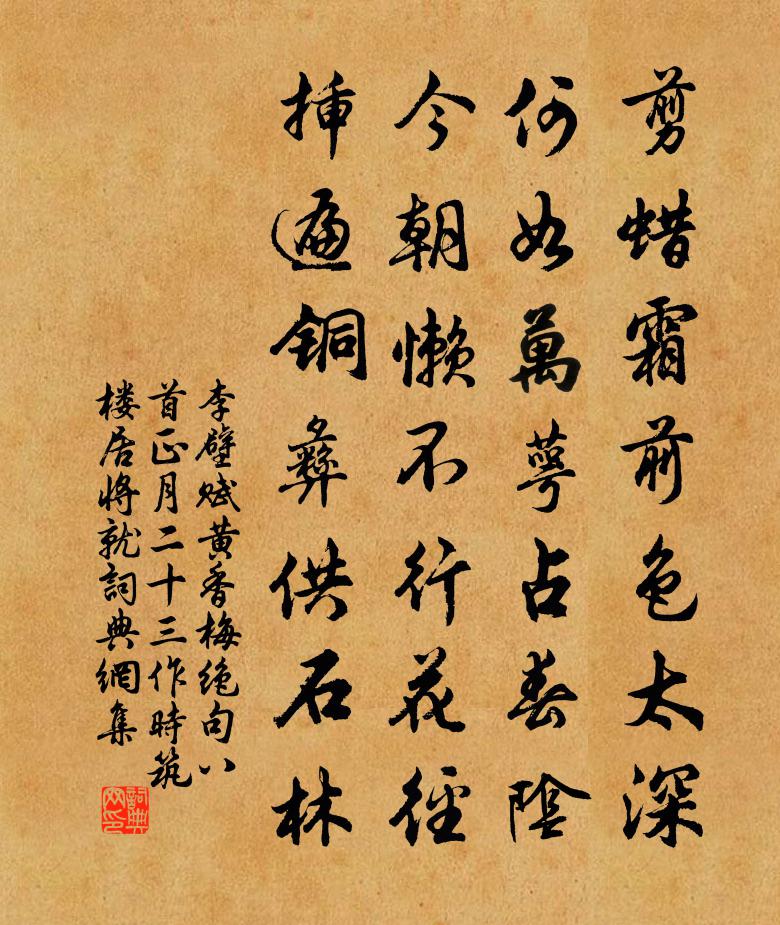 剪蜡霜前色太深
何如萬萼占春陰
今朝懶不行花徑
揷遍銅彝供石林
李壁赋黄香梅绝句八
首正月二十三作時筑
楼居將就詞典網集
詞典网印